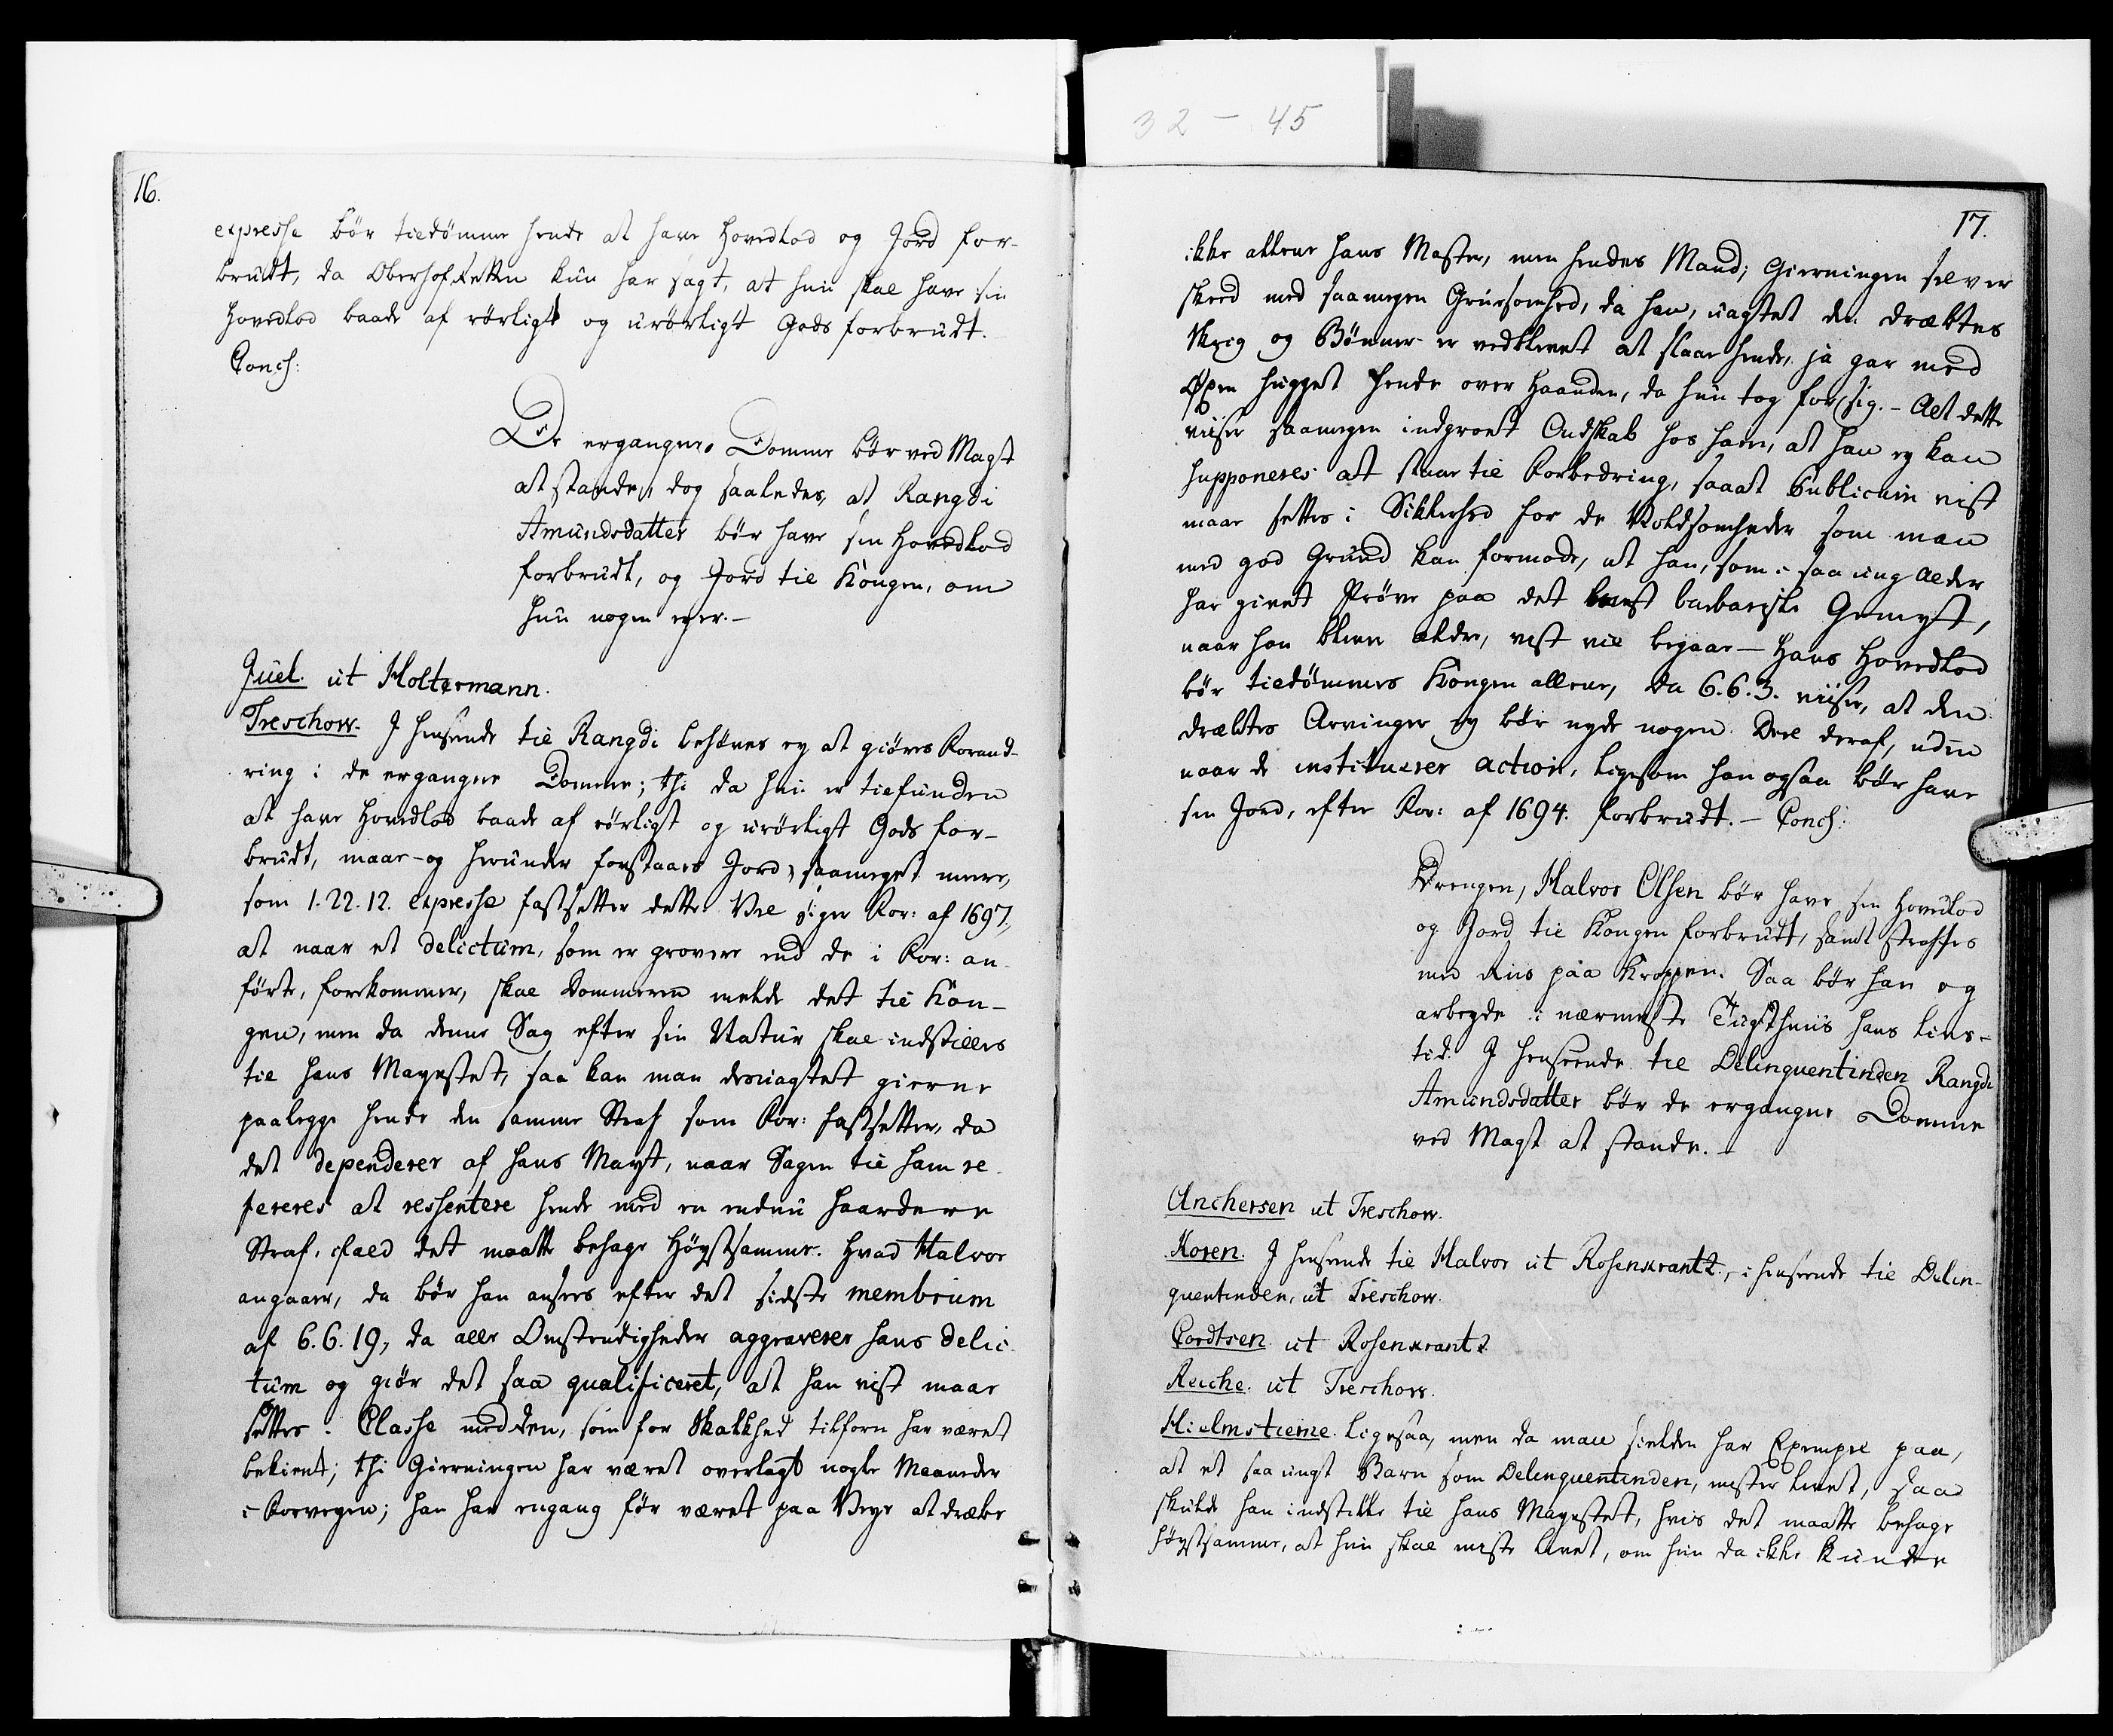 32 - 45
16.
expresse bör tildömme hende at have Hovedlod og Jord for-
brudt, da Oberhofretten kun har sagt, at hun skal have sin
Hovedlod baade af rörligt og urörligt Gods forbrudt.
Concl:
De ergangne Domme bör ved Magt
at stande, dog saaledes, at Rangdi
Amundsdatter bör have sin Hovedlod
forbrudt, og Jord til Kongen, om
hun nogen eyer.-
Juel. ut Holtermann.
Treschow. I henseende til Rangdi behöves ey at giöres Forand-
ring i de ergangne Domme; thi da hun er tilfunden
at have Hovedlod baade af rörligt og urörligt Gods for-
brudt, maae og herunder forstaaes Jord, saameget meere,
som 1-22-12. expresse fastsetter dette. Vel siger For: af 1697,
at naar et delictum, som er grovere end de i For: an-
förte, forekommer, skal Dommeren melde det til Kon-
gen, men da denne Sag efter sin Natur skal indstilles
til hans Mayestet, saa kan man desuagtet gierne
paalegge hende den samme Straf som For: fastsetter, da
det dependerer af hans Mayt, naar Sagen til ham re-
fereres at ressentere hende med en endnu haardere
Straf, ifald det maatte behage Höystsamme. Hvad Halvor
angaaer, da bör han ansees efter det sidste membrum
af 6.6.19, da alle Omstendigheder aggraverer hans delic-
tum og giör det saa qualificeret, at han vist maae
settes i Classe med den, som for Skalkhed tilforn har været
bekient; thi Gierningen har været overlagt nogle Maaneder
i Forvegen; han har engang för været paa Veye at dræbe
17.
ikke alleene hans Moster, men hendes Mand; Gierningen selv er
skeed med saamegen Gruesomhed, da han, uagtet den dræbtes
Skrig og Bönner er vedblevet at slaae hende, ja gar med
Öxen hugget hende over Haanden, da hun tog for sig.- Alt dette
viiser saamegen indgroet Ondskab hos ham, at han ey kan
supponeres at staae til Forbedring, saaat Publicum vist
maae settes i Sikkerhed for de Voldsomheder som man
med god Grund kan formode, at han, som i saa ung Alder
har givet Pröve paa det meest barbariske Gemyt,
naar han bliver ældre, vist vil begaae - Hans Hovedlod
bör tildömmes Kongen allene, da 6.6.3. viiser, at den
dræbtes Arvinger ey bör nyde nogen Deel deraf, uden
naar de instituerer action, ligesom han ogsaa bör have
sin Jord, efter For: af 1694. forbrudt.- Concl:
Drengen, Halvor Olsen bör have sin Hovedlod
og Jord til Kongen forbrudt, samt straffes
med Riis paa Kroppen. Saa bör han og
arbeyde i nærmeste Tugthuus hans Livs-
tid. I henseende til Delinquentinden Rangdi
Amundsdatter bör de ergangne Domme
ved Magt at stande.-
Anchersen ut Treschow.
Koren. I henseende til Halvor ut Rosenkrantz, i henseende til Delin-
quentinden, ut Treschow.
Cordtsen ut Rosenkrantz
Reiche. ut Treschow.
Hielmstierne. Ligesaa, men da man sielden har Exempel paa,
at et saa ungt Barn som Delinquentinden, mister livet, saa
skulde han indstille til hans Mayestet, hvis det maatte behage
höystsamme, at hun skal miste livet, om hun da ikke kunde